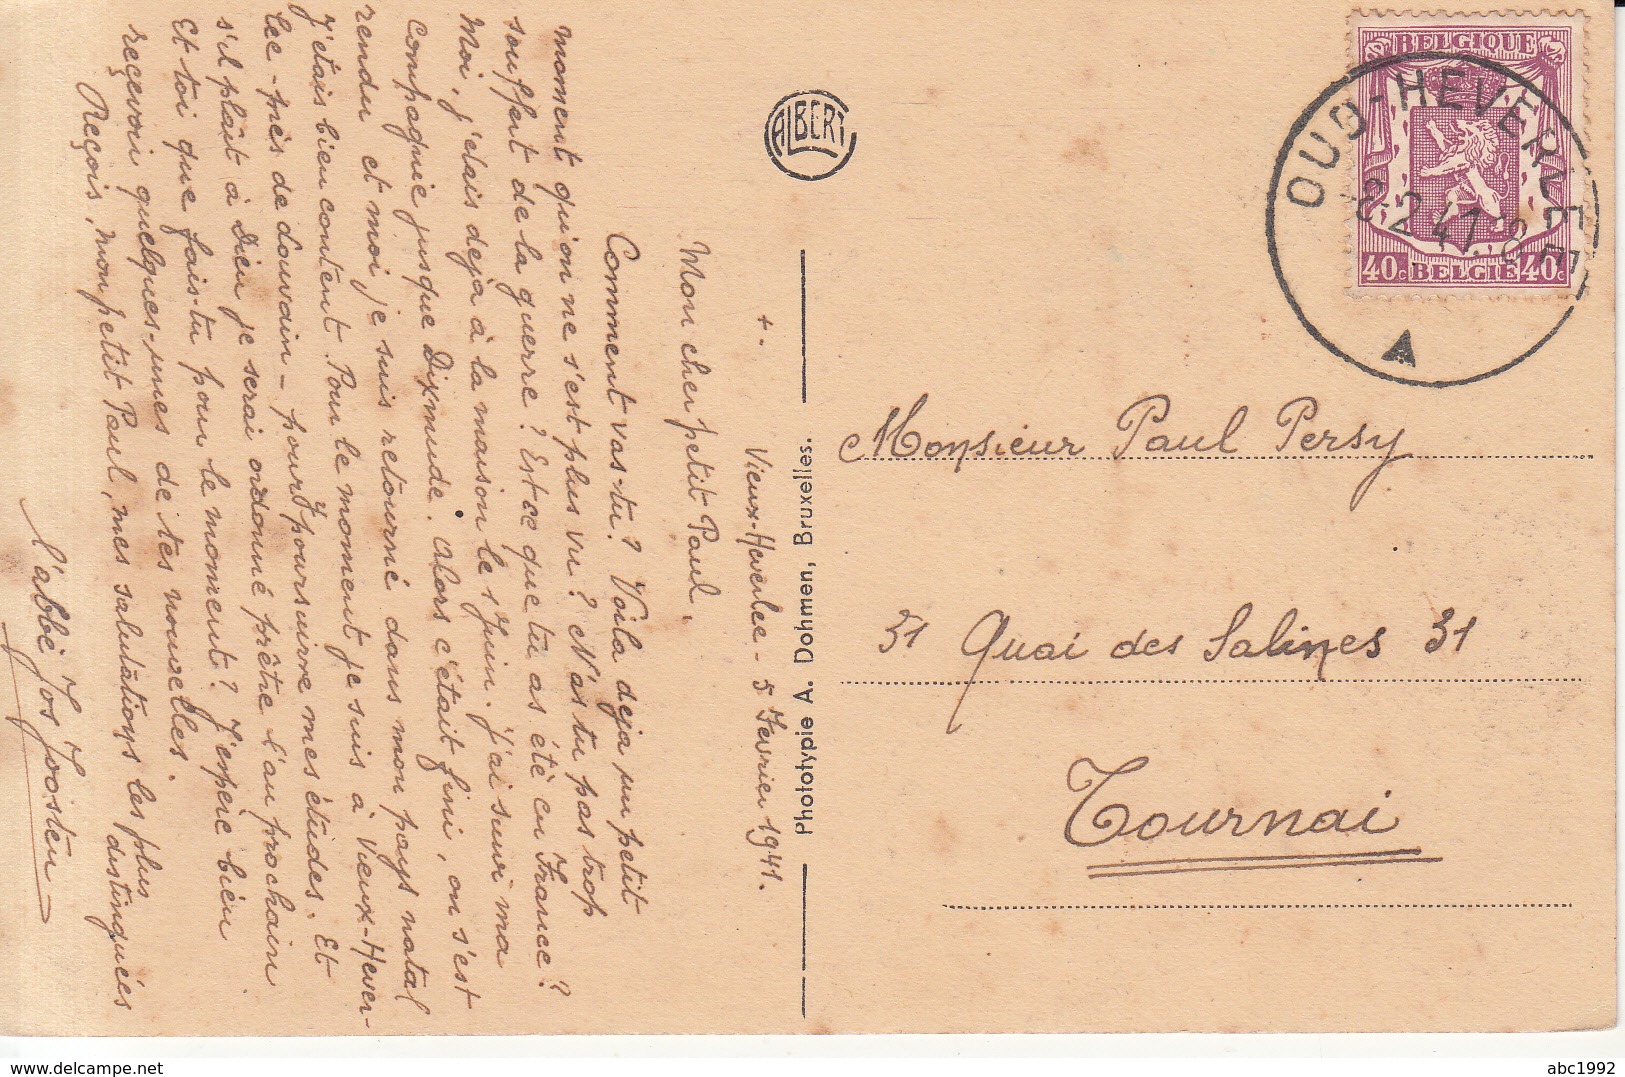 +.
Vieux-Heverlee - 5 Fevrier 1941.
Mon cher petit Paul.
Comment vas-tu? Voila deja un petit
moment qu'on ne s'est plus vu? N'as tu pas trop
souffert de la guerre? Est ce que tu as été en France?
Moi, j'étais deja à la maison le 1 Juin. J'ai suivi ma
compagnie jusque Dixmude. Alors c'était fini, on s'est
rendu et moi je suis retourné dans mon pays natal
J'étais bien content. Pour le moment je suis à Vieux-Hever-
lee - près de Louvain - pour y poursuivre mes études. Et
s'il plaît à Dieu je serai ordonné prêtre l'au prochain
Et toi que fais-tu pour le moment? J'espère bien
reçevoir quelques-unes de tes nouvelles.
Reçois, mon petit Paul, mes salutations les plus
distinguées
l'abbé Jos Joosten
ALBERT
Phototypie A. Dohmen, Bruxelles.
BELGIQUE
40c BELGIE 40c
OUD-HEVERLEE
-8-2 41. 8
A
Monsieur Paul Persy
31 Quai des Salines 31
Tournai
abc1992